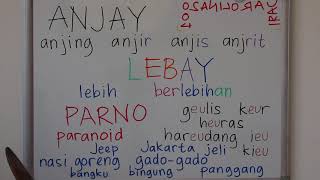 ANJAY
anjing anjir anjis anjrit
LEBAY
lebih berlebihan
PARNO geulis keur
heuras
paranoid hareudang ieu
Jeep Jakarta jeli kieu
nasi goreng gado-gado
bangku bingung panggang